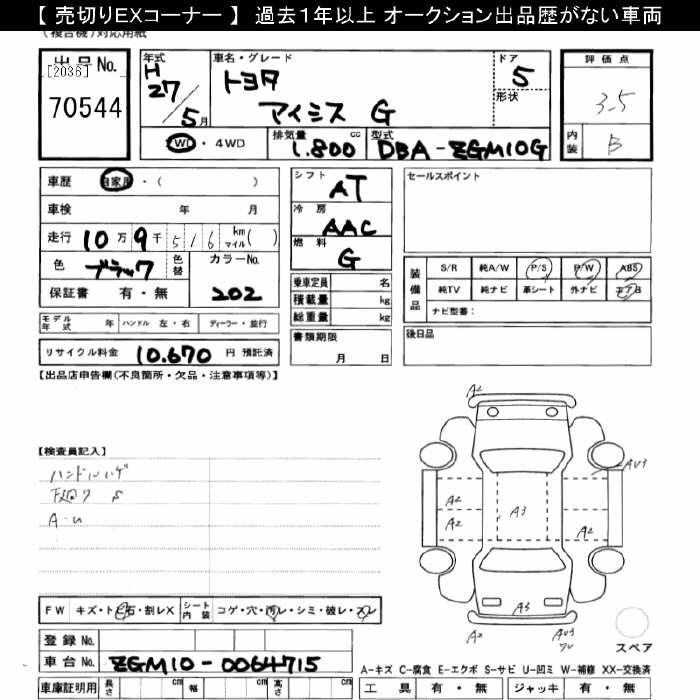 【 売切りEXコーナー 】 過去１年以上 オークション出品歴がない車両
（複合機）対応用紙
出品No.
[2036]
70544
年式
H
27/5月
車名・グレード
トヨタ
アイシス G
ドア
5
形状
評価点
3.5
内装
B
2WD ・ 4WD
排気量
cc
1.800
型式
DBA-ZGM10G
車歴
自家用・（ ）
車検 年 月
走行 10万9千516 km マイル ( )
色
ブラック
色替
カラーNo.
202
保証書 有・無
シフト
AT
冷房
AAC
燃料
G
乗車定員 名
積載量 kg
総重量 kg
書類期限
月 日
セールスポイント
装備品
S/R 純A/W P/S P/W ABS
純TV 純ナビ 革シート 外ナビ エアB
ナビ型番：
後日品
モデル年式 年 ハンドル 左・右 ディーラー・並行
リサイクル料金 10.670 円 預託済
【出品店申告欄(不良箇所・欠品・注意事項等)】
【検査員記入】
ハンドルハゲ
下廻り S
A-U
A2
AU3
A2
A2
A3
A2
A3
A2
AU3
FW キズ・ト石・割レX シート内装 コゲ・穴・汚レ・シミ・破レ・スレ
登録No.
車台No. ZGM10-0064715
スペア
A-キズ C-腐食 E-エクボ S-サビ U-凹ミ W-補修 XX-交換済
車庫証明用 長さ cm 幅 cm 高さ cm
工具 有・無 ジャッキ 有・無